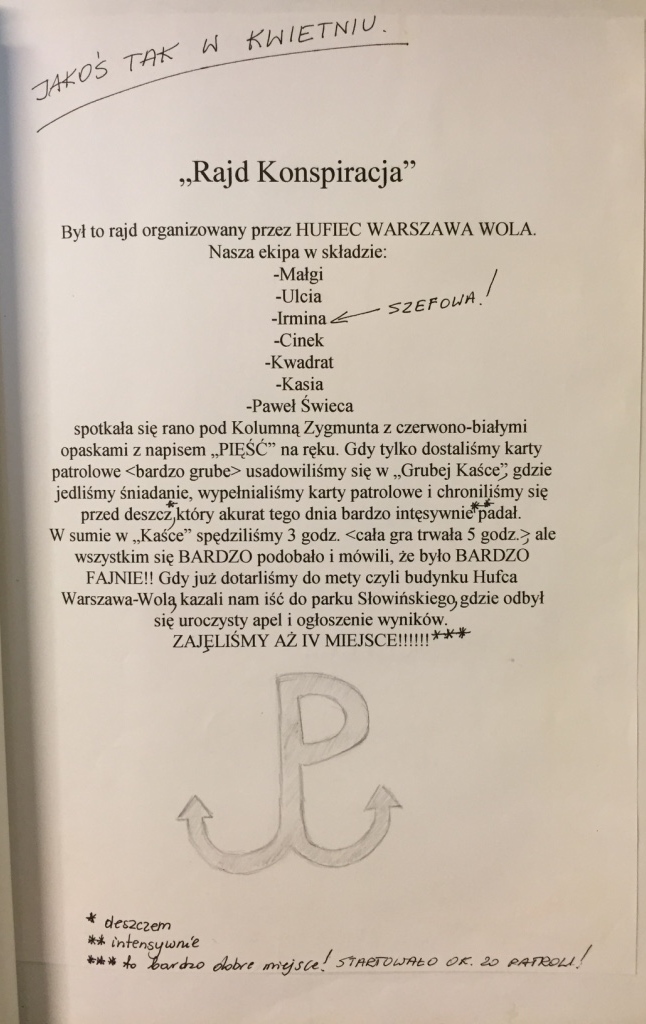 JAKOŚ TAK W KWIETNIU.
„Rajd Konspiracja”
Był to rajd organizowany przez HUFIEC WARSZAWA WOLA.
Nasza ekipa w składzie:
-Małgi
-Ulcia
-Irmina ← SZEFOWA!
-Cinek
-Kwadrat
-Kasia
-Paweł Świeca
spotkała się rano pod Kolumną Zygmunta z czerwono-białymi
opaskami z napisem „PIĘŚĆ” na ręku. Gdy tylko dostaliśmy karty
patrolowe <bardzo grube> usadowiliśmy się w „Grubej Kaśce”, gdzie
jedliśmy śniadanie, wypełnialiśmy karty patrolowe i chroniliśmy się
przed deszcz*,który akurat tego dnia bardzo intęsywnie** padał.
W sumie w „Kaśce” spędziliśmy 3 godz. <cała gra trwała 5 godz.>, ale
wszystkim się BARDZO podobało i mówili, że było BARDZO
FAJNIE!! Gdy już dotarliśmy do mety czyli budynku Hufca
Warszawa-Wola, kazali nam iść do parku Słowińskiego, gdzie odbył
się uroczysty apel i ogłoszenie wyników.
ZAJĘLIŚMY AŻ IV MIEJSCE!!!!!!***
* deszczem
** intensywnie
*** to bardzo dobre miejsce! STARTOWAŁO OK. 20 PATROLI!